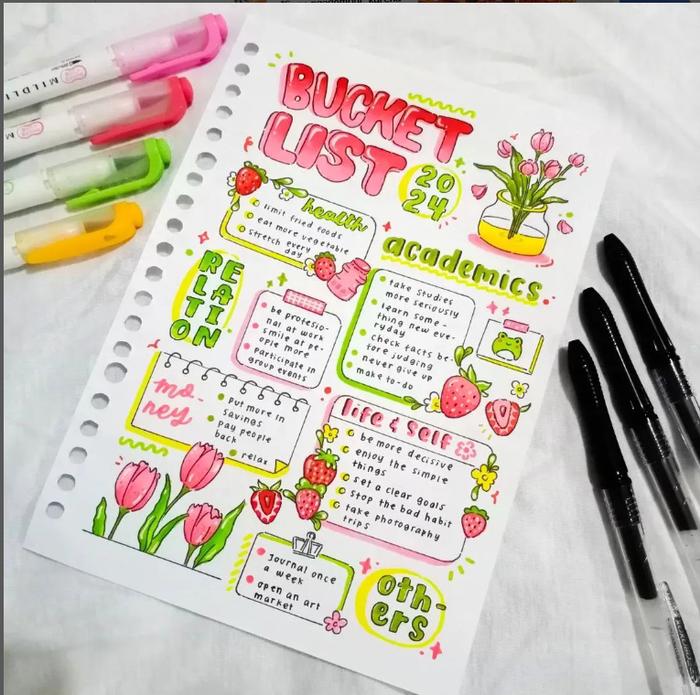 BUCKET
LIST
20
24
health
limit fried foods
eat more vegetable
stretch every
day
academics
take studies
more seriously
learn some-
thing new eve-
ryday
check facts be-
fore judging
never give up
make to-do
RE
LA
TI
ON
be profesio-
nal at work
smile at pe-
ople more
participate in
group events
mo-
ney
put more in
savings
pay people
back
relax
life & self
be more decisive
enjoy the simple
things
set a clear goals
stop the bad habit
take photography
trips
Journal once
a week
open an art
market
oth-
ers
MILDLI
M